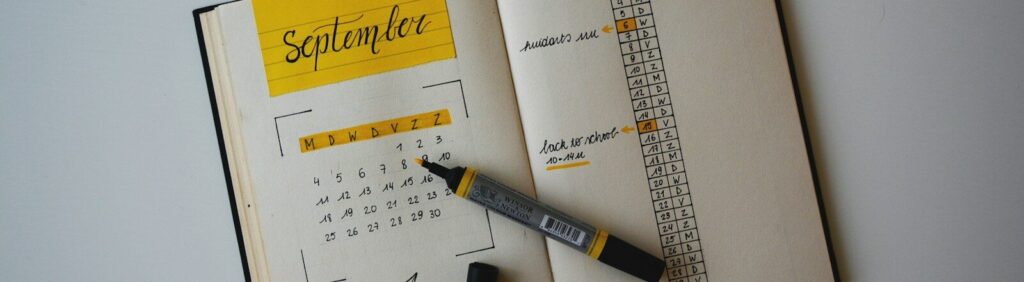 September
M D W D V Z Z
1 2 3
4 5 6 7 8 9 10
11 12 13 14 15 16
18 19 20 21 22 23
25 26 27 28 29 30
WINSOR
& NEWTON
5 D
huidarts 11u 6 W
7 D
8 V
9 Z
10 Z
11 M
12 D
13 W
14 D
back to school 15 V
10-14u
16 Z
17 Z
18 M
19 D
20 W
21 D
22 V
23 Z
24 Z
25 M
26 D
27 W
28 D